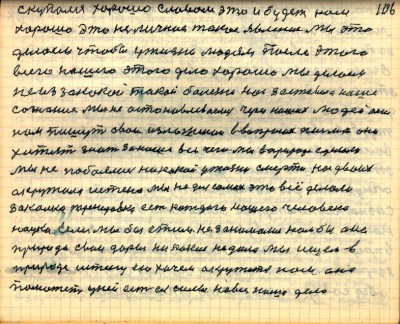 скупался хорошо словом это и будет нам 106
хорошо Это не личное такое явление мы это
делаем чтобы у жизни людям После этого
всего нашего этого дело хорошо мы делаем
не из за какой такой болезни нас заставило наше
сознание мы не останавливаемся через наших людей они
нам пишут свои изложения в вопросах жизни они
хотят знать законы все чего мы в природе сделали
мы не побоялись никакой у жизни смерти на двоих
окружала истина мы на ди самих это всё делали
закалка тренировка есть каждого нашего человека
наука Если мы бы етим не занимались нам бы она
природа свои дары никаких не дала мы ищем в
природе истину ею хочем окружить нам она
поможет у ней есть ся силы новое наше дело